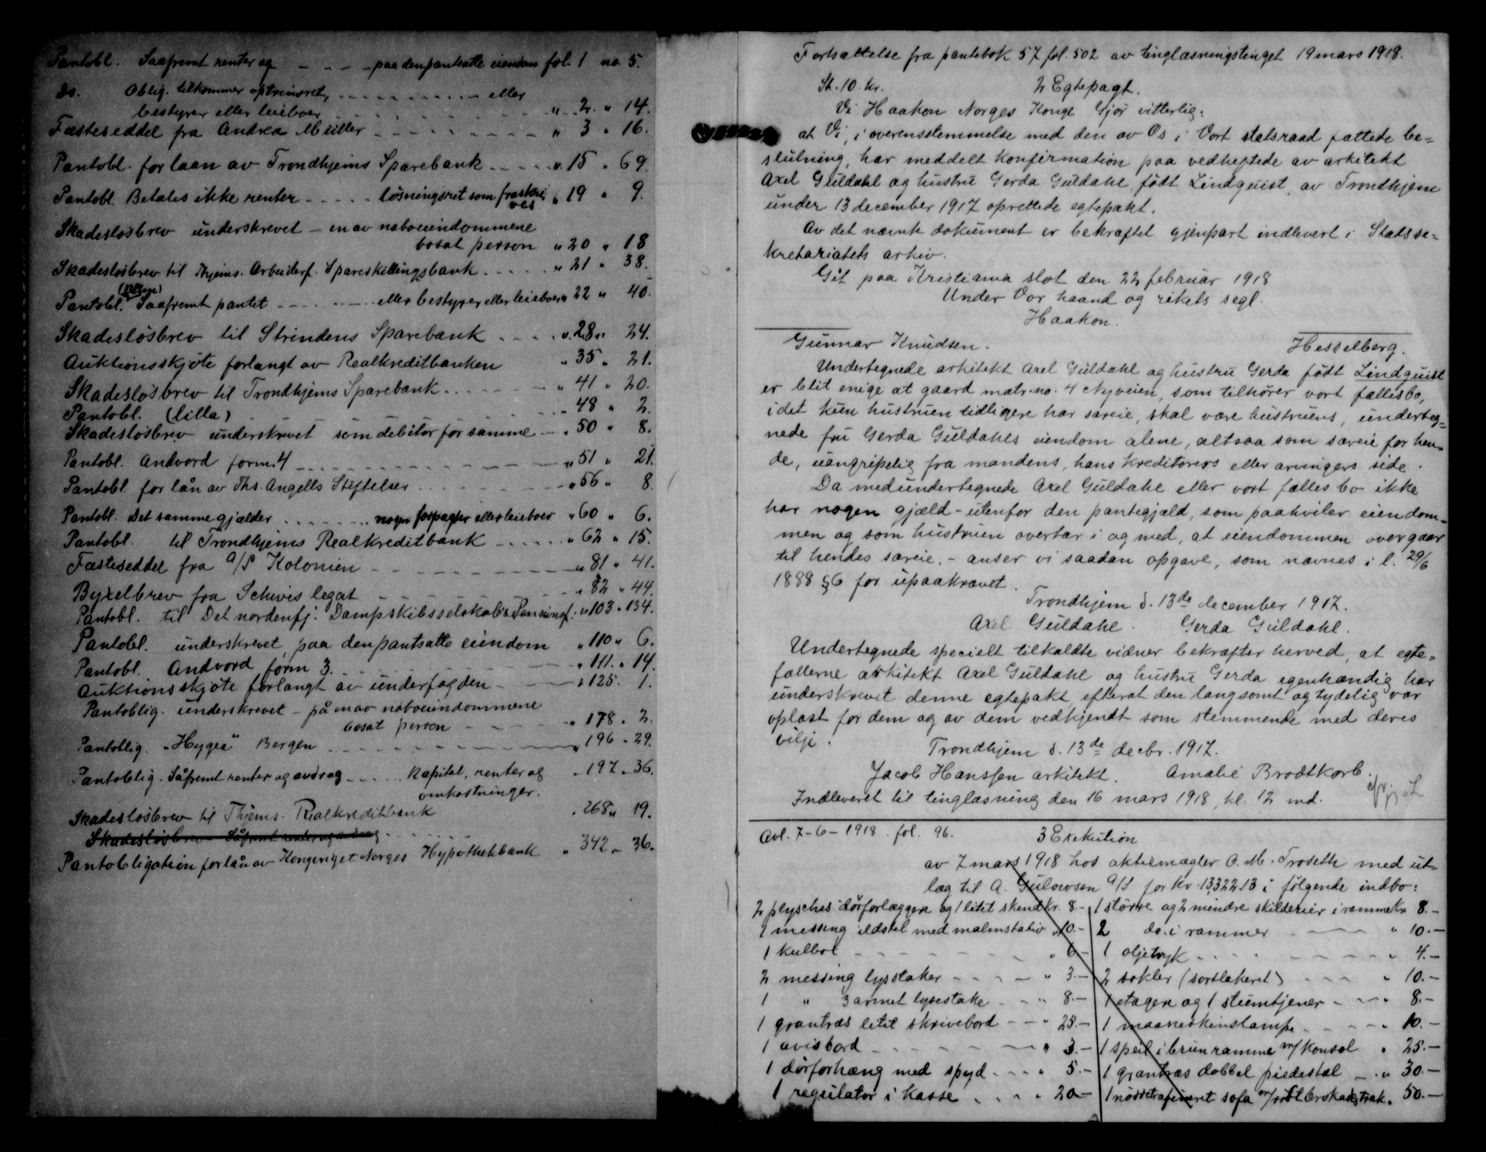 Pantobl. Saafremt renter og - - - paa den pantsatte eiendom fol. 1 no. 5.
Do. Oblig. tilkommer optrinsret, - - - eller
bestyrer eller leieboer - - - " 2. " 14.
Fæsteseddel fra Andrea Müller - - - " 3 " 16.
Pantobl. for laan av Trondhjems Sparebank - - - " 15 " 69.
Pantobl. Betales ikke renter - - - løsningsret som fraskri-
ves " 19 " 9.
Skadesløsbrev underskrevet - en av naboeiendommene
bosat person " 20 " 18
Skadesløsbrev til Thjems. Arbeiderf. Spareskillingsbank - - - " 21 " 38.
Pantobl. (lilla) Saafremt pantet - - - eller bestyrer eller leieboer " 22 " 40.
Skadesløsbrev til Strindens Sparebank - - - " 28 " 24.
Auktionsskjøte forlangt av Realkreditbanken " 35 " 21.
Skadesløsbrev til Trondhjems Sparebank - - - " 41 " 20.
Pantobl. (lilla) - - - " 48 " 2.
Skadesløsbrev underskrevet som debitor for samme - " 50 " 8.
Pantobl. Andvord form. 4 - - - " 51 " 21.
Pantobl for lån av Ths. Angells Stiftelser - - - " 56 " 8.
Pantobl. Det samme gjælder - - - nogen forpagter eller leieboer " 60 " 6.
Pantobl. til Trondhjems Realkreditbank - - - " 62 " 15.
Fæsteseddel fra A/S Kolonien - - - " 81 " 41.
Byxelbrev fra Schivis legat - - - " 82 " 44.
Pantobl. til Det nordenfj. Dampskibsselskabs Pensionsf. " 103 " 134.
Pantobl. underskrevet, paa den pantsatte eiendom " 110 " 6.
Pantobl. Andvord form 3. - - - " 111. " 14.
Auktionsskjøte forlangt av underfogden - - - " 125. 1.
Pantoblig. underskrevet - på en av naboeiendommene
bosat person - - - " 178 " 2.
Pantoblig. "Hygea" Bergen - - - " 196 " 29.
Pantoblig. Såfremt renter og avdrag - - - kapital, renter og
omkostninger. " 197 " 36.
Skadesløsbrev til Thjems. Realkreditbank " 268 " 19.
Skadesløsbrev Såfremt renter og avdrag - - -
Pantobligation for lån av Kongeriget Norges Hypothekbank " 342 " 36.
Fortsættelse fra pantebok 57 fol. 502 av tinglæsningstinget 19 mars 1918.
St. 10. kr. 2 Egtepagt.
Vi Haakon Norges Konge Gjør vitterlig:
at Vi, i overensstemmelse med den av Os i Vort statsraad fattede be-
slutning, har meddelt konfirmation paa vedheftede av arkitekt
Axel Guldahl og hustru Gerda Guldahl, født Lindquist, av Trondhjem
under 13 december 1917 oprettede egtepakt.
Av det nævnte dokument er bekræftet gjenpart indlevert i Statsse-
kretariatets arkiv.
Git paa Kristiania slot den 22 februar 1918
Under Vor haand og rikets segl.
Haakon.
Gunnar Knudsen. Hesselberg.
Undertegnede arkitekt Axel Guldahl og hustru Gerda født Lindquist
er blit enige at gaard matr. no. 4 Nyveien, som tilhører vort fællesbo,
idet kun hustruen tidligere har særeie, skal være hustruens, underteg-
nede fru Gerda Guldahls eiendom alene, altsaa som særeie for hen-
de, uangripelig fra mandens, hans kreditorers eller arvingers side.
Da medundertegnede Axel Guldahl eller vort fælles bo ikke
har nogen gjæld - utenfor den pantegjæld, som paahviler eiendom-
men og som hustruen overtar i og med, at eiendommen overgaar
til hendes særeie, - anser vi saadan opgave, som nævnes i l. 29/6
1888 §6 for upaakrævet.
Trondhjem d. 13de december 1917.
Axel Guldahl. Gerda Guldahl.
Undertegnede specielt tilkaldte vidner bekræfter herved, at egte-
fællerne arkitekt Axel Guldahl og hustru Gerda egenhændig har
underskrevet denne egtepakt efterat den langsomt og tydelig var
oplæst for dem og av dem vedkjendt som stemmende med deres
vilje.
Trondhjem d. 13de decbr. 1917.
Jacob Hanssen arkitekt. Amalie Brodtkorb.
Indleveret til tinglæsning den 16 mars 1918, kl. 12 md.
Avl. 7-6-1918. fol. 96. 3 Exekution
av 7 mars 1918 hos aktiemægler O. M. Troseth med ut-
læg til A. Gulowsen A/S for kr. 13322.13 i følgende indbo:
2 plysches dørforlæggere og 1 litet skind kr. 8.-
1 messing ildstel med malmstativ " 10.-
1 kulbox - - - " 6.-
2 messing lysstaker - - - " 3.-
1 " 3 armet lysestake - - " 8.-
1 grantræs litet skrivebord - - " 25.-
1 avisbord - - - " 3.-
1 dørforhæng med spyd - - - " 5.-
1 regulator i kasse - - - " 20.-
1 større og 2 mindre skilderier i ramme kr. 8.-
2 do. i rammer - - - " 10.-
1 oljetryk - - - " 4.-
2 sokler (sortlakeret) - - - " 10.-
1 etagere og 1 stumtjener - - - " 8.-
1 maaneskinslampe - - - " 10.-
1 speil i brun ramme m/ konsol " 25.-
1 grantræs dobbel piedestal - " 30.-
1 nøttetræfineret sofa m/ rødt bershad. træk. 50.-